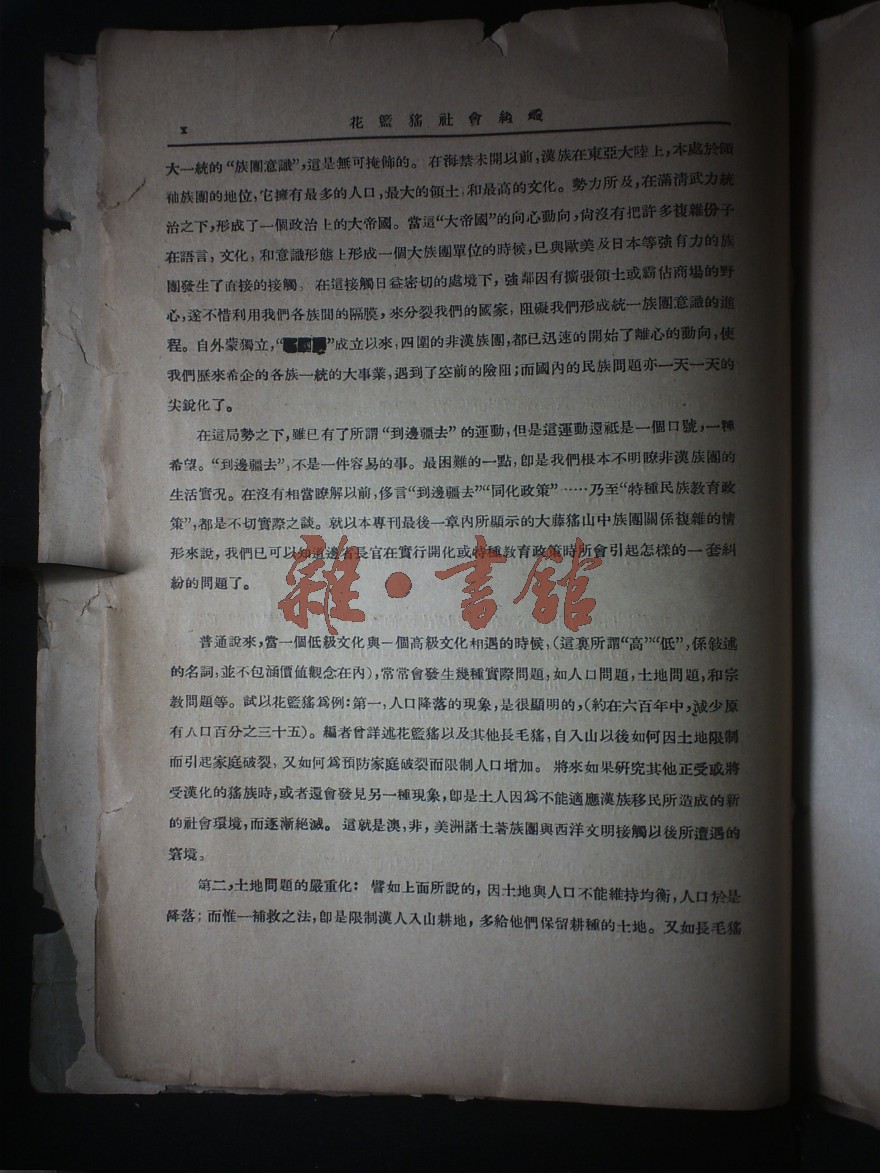 x
花籃猺社會組織
大一統的“族團意識”,這是無可掩飾的。在海禁未開以前,漢族在東亞大陸上,本處於領
袖族團的地位,它擁有最多的人口,最大的領土,和最高的文化。勢力所及,在滿清武力統
治之下,形成了一個政治上的大帝國。當這“大帝國”的向心動向,尙沒有把許多複雜份子
在語言,文化,和意識形態上形成一個大族團單位的時候,已與歐美及日本等強有力的族
團發生了直接的接觸。在這接觸日益密切的處境下,強鄰因有擴張領土或霸佔商場的野
心,遂不惜利用我們各族間的隔膜,來分裂我們的國家,阻礙我們形成統一族團意識的進
程。自外蒙獨立,“”成立以來,四圍的非漢族團,都已迅速的開始了離心的動向,使
我們歷來希企的各族一統的大事業,遇到了空前的險阻;而國內的民族問題亦一天一天的
尖銳化了。
在這局勢之下,雖已有了所謂“到邊疆去”的運動,但是這運動還祇是一個口號,一種
希望。“到邊疆去”,不是一件容易的事。最困難的一點,卽是我們根本不明瞭非漢族團的
生活實況。在沒有相當瞭解以前,侈言“到邊疆去”“同化政策”……乃至“特種民族教育政
策”,都是不切實際之談。就以本專刊最後一章內所顯示的大藤猺山中族團關係複雜的情
形來說,我們已可以知道邊省長官在實行開化或特種教育政策時所會引起怎樣的一套糾
紛的問題了。
雜·書館
普通說來,當一個低級文化與一個高級文化相遇的時候,(這裏所謂“高”“低”,係敍述
的名詞,並不包涵價値觀念在內),常常會發生幾種實際問題,如人口問題,土地問題,和宗
教問題等。試以花籃猺爲例:第一,人口降落的現象,是很顯明的,(約在六百年中,減少原
有人口百分之三十五)。編者曾詳述花籃猺以及其他長毛猺,自入山以後如何因土地限制
而引起家庭破裂,又如何爲預防家庭破裂而限制人口增加。將來如果研究其他正受或將
受漢化的猺族時,或者還會發見另一種現象,卽是土人因爲不能適應漢族移民所造成的新
的社會環境,而逐漸絕滅。這就是澳,非,美洲諸土著族團與西洋文明接觸以後所遭遇的
窘境。
第二,土地問題的嚴重化:譬如上面所說的,因土地與人口不能維持均衡,人口於是
降落;而惟一補救之法,卽是限制漢人入山耕地,多給他們保留耕種的土地。又如長毛猺